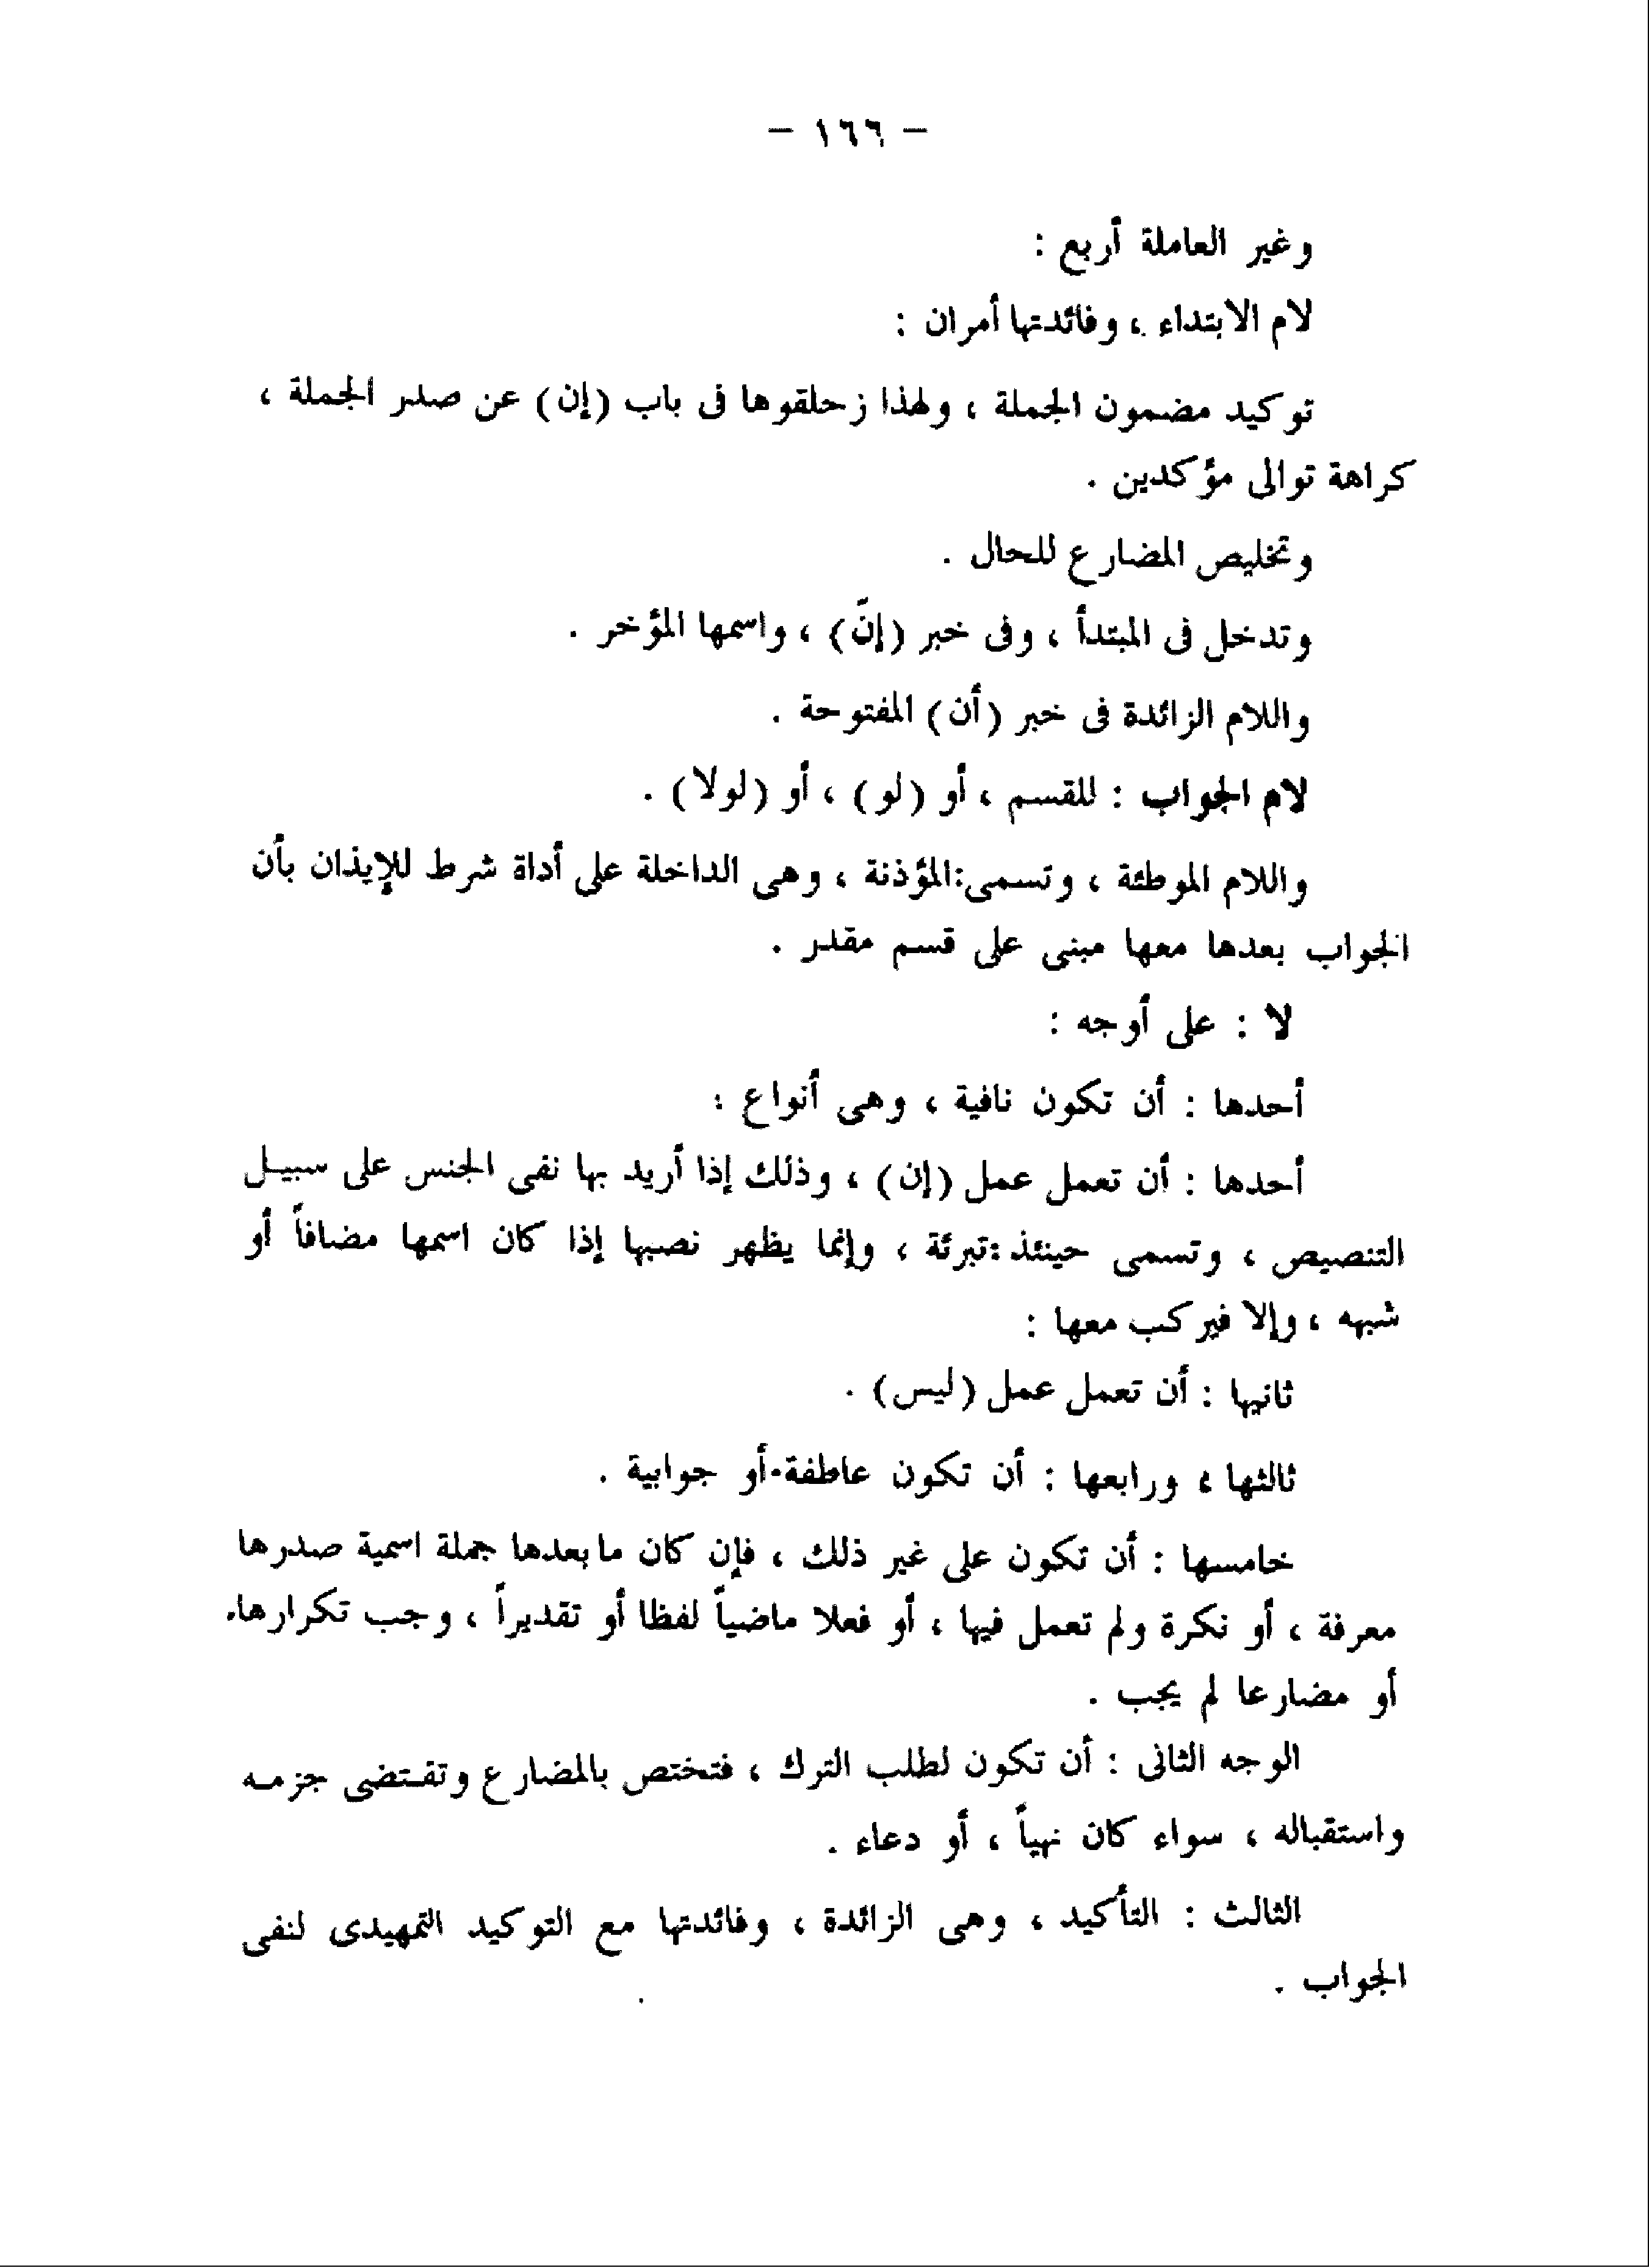 – ١٦٦ –
وغير العاملة أربع :
لام الابتداء ، وفائدتها أمران :
توكيد مضمون الجملة ، ولهذا زحلقوها فى باب (إن) عن صدر الجملة ،
كراهة توالى مؤكدين .
وتخليص المضارع للحال .
وتدخل فى المبتدأ ، وفى خبر (إنّ) ، واسمها المؤخر .
واللام الزائدة فى خبر (أن) المفتوحة .
لام الجواب : للقسم ، أو (لو) ، أو (لولا) .
واللام الموطئة ، وتسمى:المؤذنة ، وهى الداخلة على أداة شرط للإيذان بأن
الجواب بعدها معها مبنى على قسم مقدر .
لا : على أوجه :
أحدها : أن تكون نافية ، وهى أنواع :
أحدها : أن تعمل عمل (إن) ، وذلك إذا أريد بها نفى الجنس على سبيل
التنصيص ، وتسمى حينئذ :تبرئة ، وإنما يظهر نصبها إذا كان اسمها مضافاً أو
شبهه ، وإلا فيركب معها :
ثانيها : أن تعمل عمل (ليس) .
ثالثها ، ورابعها : أن تكون عاطفة أو جوابية .
خامسها : أن تكون على غير ذلك ، فإن كان ما بعدها جملة اسمية صدرها
معرفة ، أو نكرة ولم تعمل فيها ، أو فعلا ماضياً لفظا أو تقديراً ، وجب تكرارها.
أو مضارعا لم يجب .
الوجه الثانى : أن تكون لطلب الترك ، فتختص بالمضارع وتقتضى جزمه
واستقباله ، سواء كان نهياً ، أو دعاء .
الثالث : التأكيد ، وهى الزائدة ، وفائدتها مع التوكيد التمهيدى لنفى
الجواب .